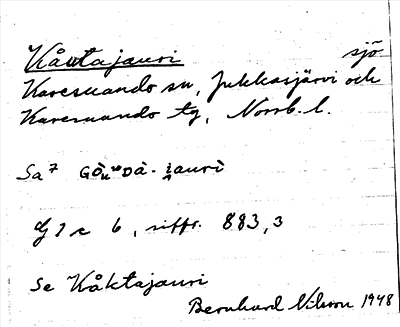 Kåutajauri sjö
Karesuando sn, Jukkasjärvi och
Karesuando tg, Norrb. l.
Sa 7
G 2 c 6, siffr. 883,3
Se Kåktajauri
Bernhard Nilsson 1948